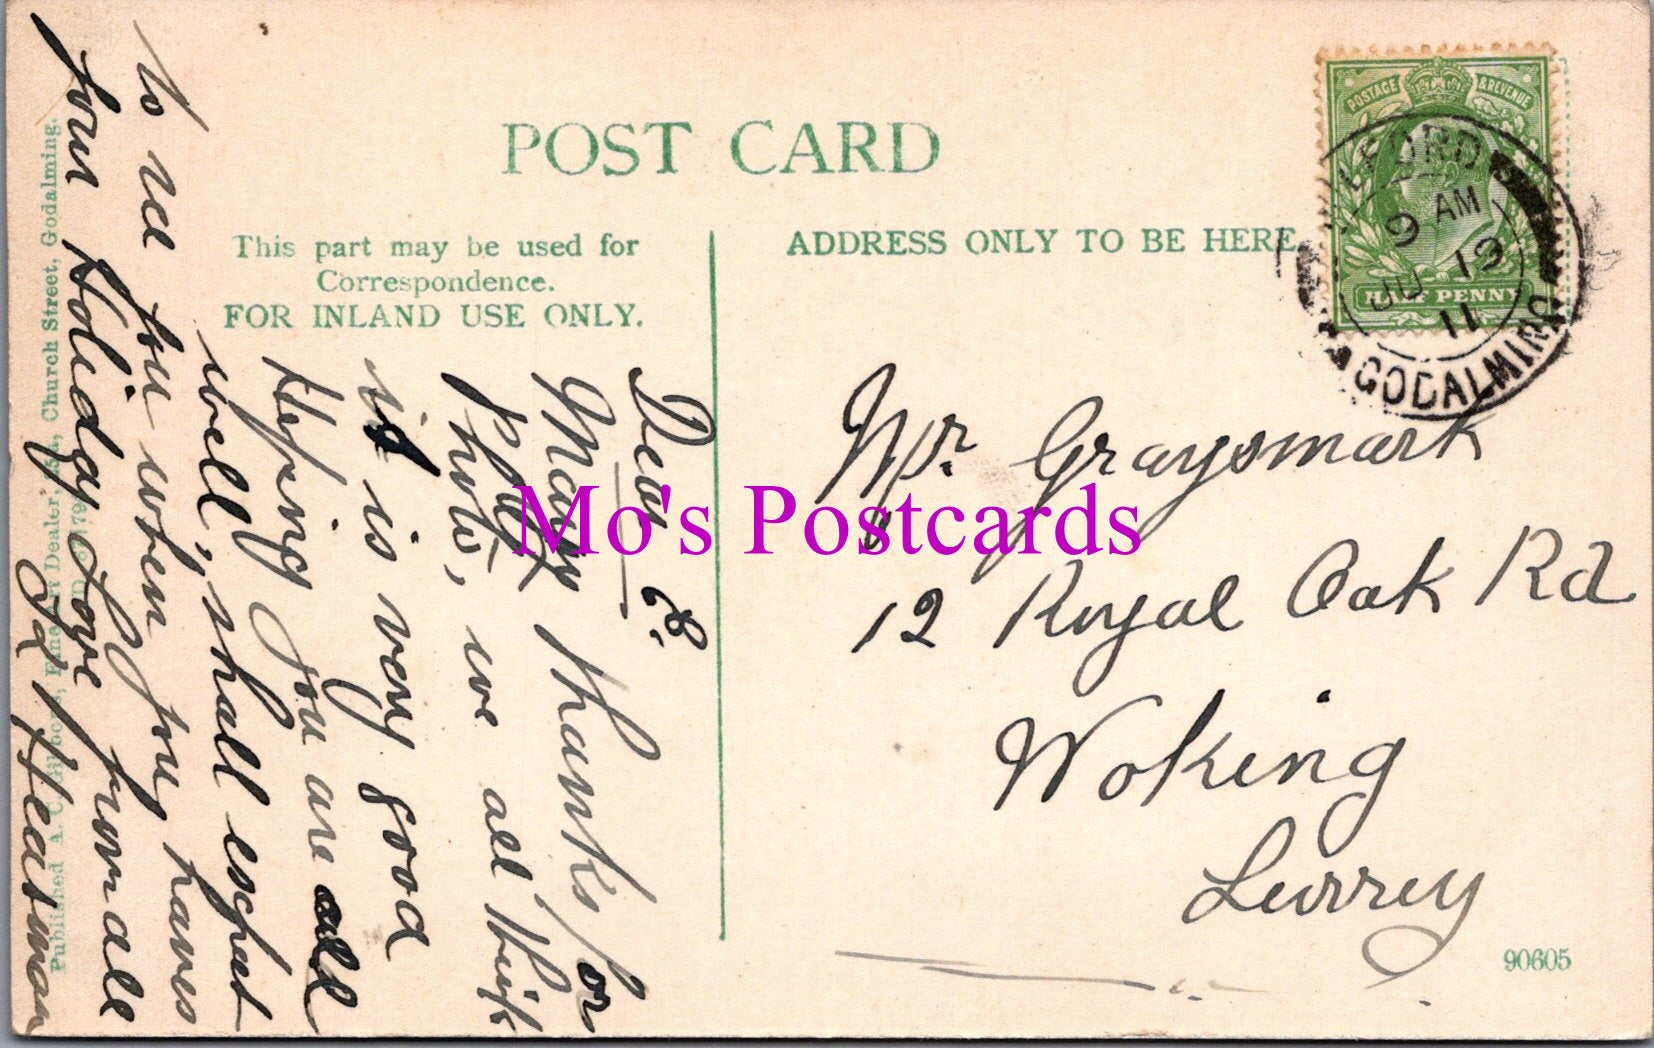 POST CARD
This part may be used for
Correspondence.
FOR INLAND USE ONLY.
ADDRESS ONLY TO BE HERE
POSTAGE & REVENUE
HALF PENNY
MILFORD
9 AM
JU 19
11
GODALMING
Dear E.
Many thanks for
photo, we all think
it is very good
Hoping you are all
well, shall expect
to see you when you have
your Holiday Love from all
Mr Graysmark
12 Royal Oak Rd
Woking
Surrey
90605
Published A. C. Gibbons, Fine Art Dealer, Church Street, Godalming.
Mo's Postcards